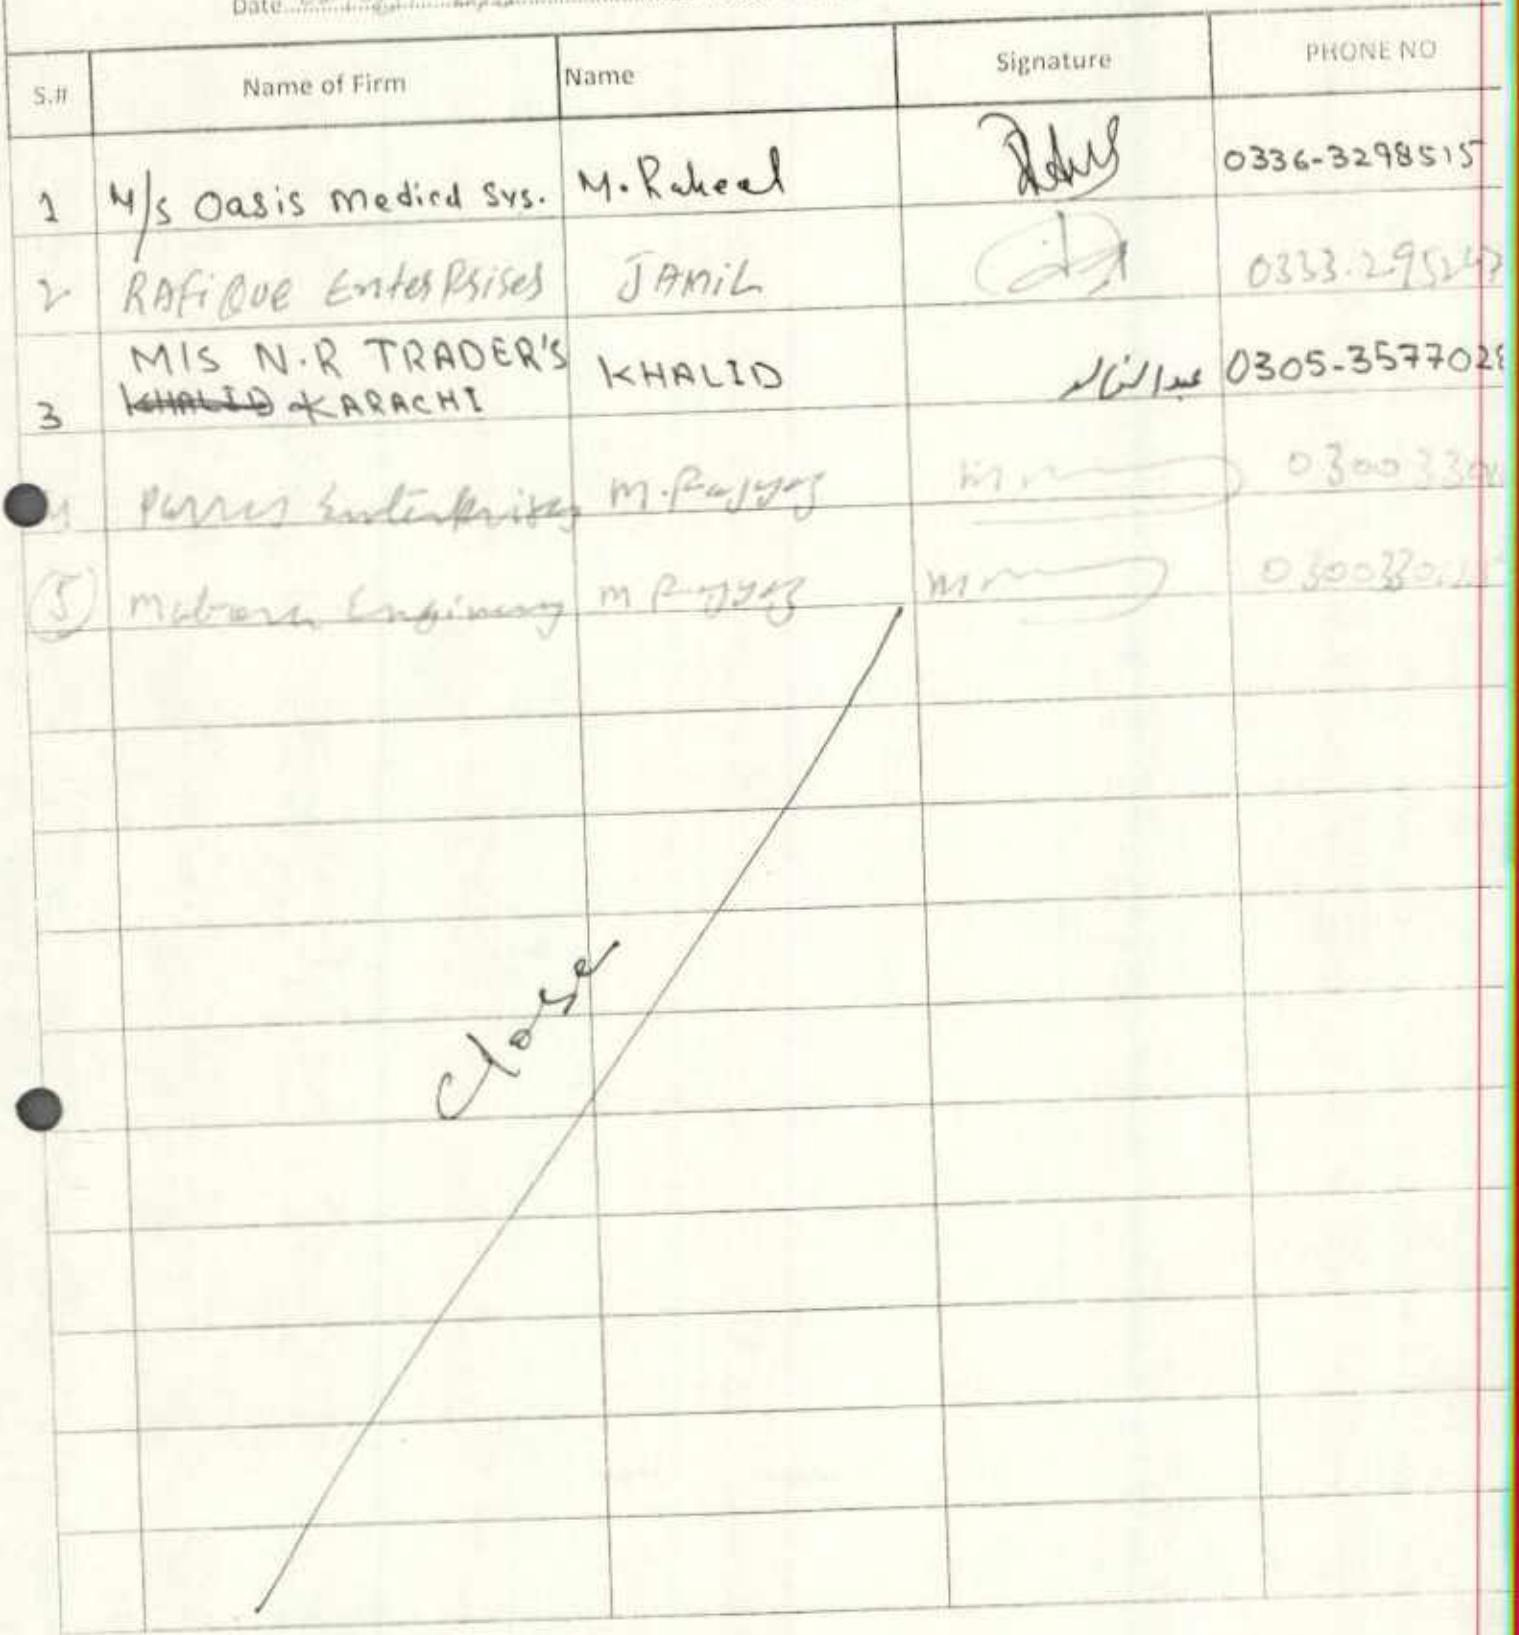 Date
S.# Name of Firm Name Signature PHONE NO
1 M/s Oasis Medical Svs. M. Raheel 0336-3298515
2 RAFiQUE EnterPrises JAMiL 0333-295247
M/S N.R TRADER'S
3 KHALID KARACHI KHALID عبدالخالد 0305-3577028
4 Enterprises M. Fayyaz 03003300
5 Engineering M Fayyaz 0300330
Close